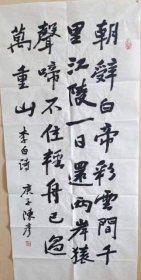 朝辭白帝彩雲間千
里江陵一日還兩岸猿
聲啼不住輕舟已過
萬重山 李白詩 庚子陳彥